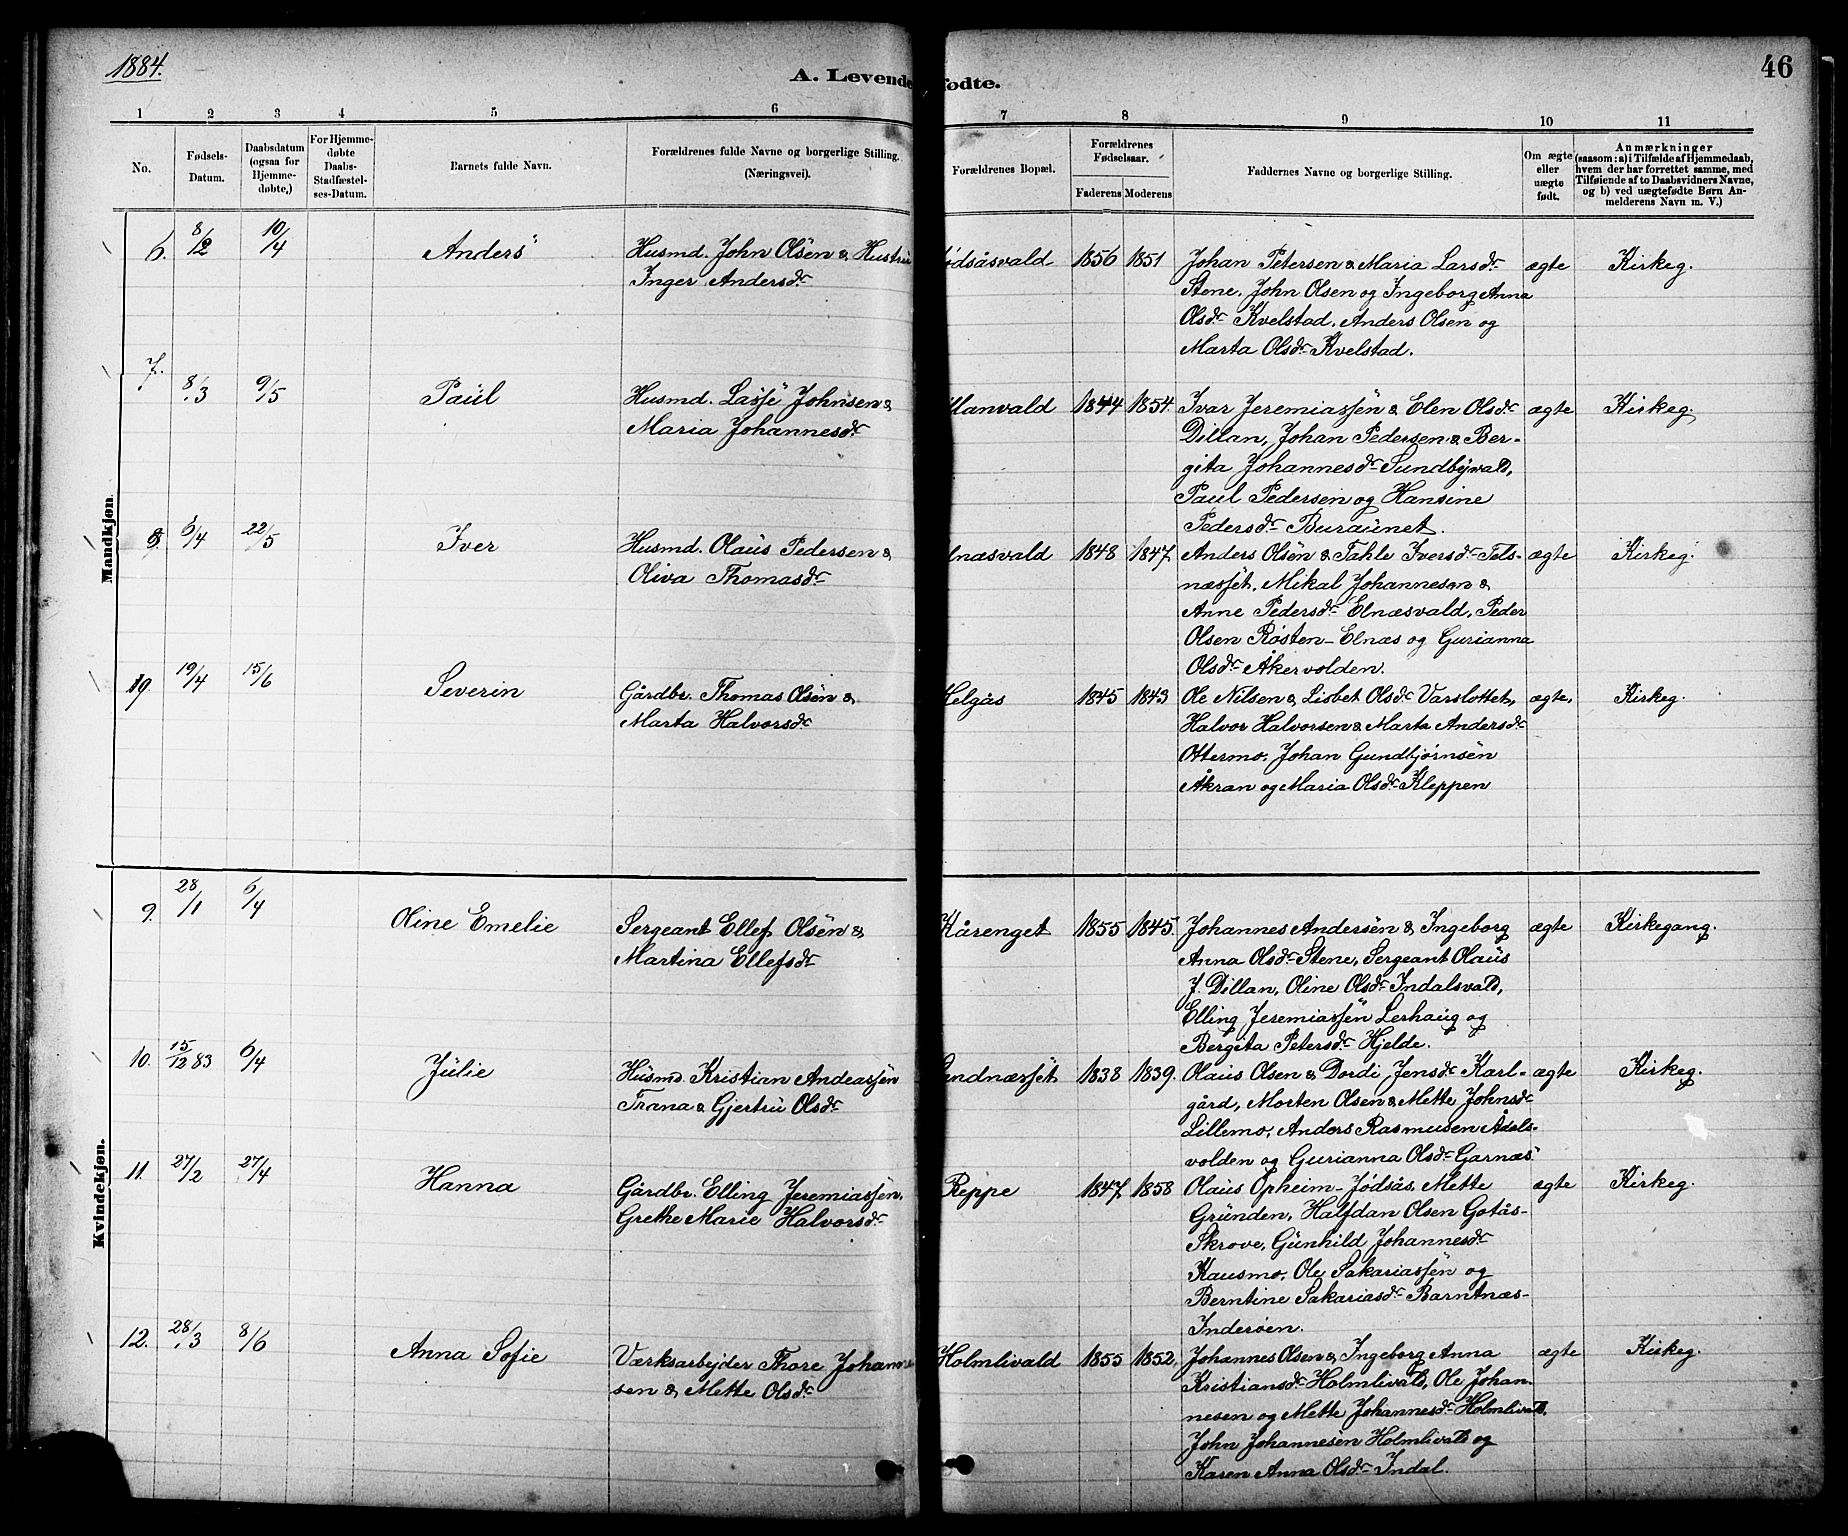 1884.
A. Levende fødte.
46
1 2 3 4 5 6 7 8 9 10 11
No.
Fødsels-
Datum.
Daabsdatum
(ogsaa for
Hjemme-
døbte,)
For Hjemme-
døbte
Daabs-
Stadfæstel-
ses-Datum.
Barnets fulde Navn.
Forældrenes fulde Navne og borgerlige Stilling.
(Næringsvei).
Forældrenes Bopæl.
Forældrenes
Fødselsaar.
Faderens Moderens
Faddernes Navne og borgerlige Stilling.
Om ægte
eller
uægte
født.
Anmærkninger
(saasom: a) i Tilfælde af Hjemmedaab,
hvem der har forrettet samme, med
Tilføiende af to Daabsvidners Navne,
og b) ved uægtefødte Børn An-
melderens Navn m. V.)
Mandkjøn
6. 8/12 10/4 Anders Husmd. John Olsen & Hustru ødsåsvald 1856 1851 Johan Petersen & Maria Larsdr ægte Kirkeg.
Inger Andersdr Stene, John Olsen og Ingeborg Anna
Olsdr Kvelstad, Anders Olsen og
Marta Olsdr Kvelstad.
7. 8/3 9/5 Paul Husmd. Lasse Johnsen & llanvald 1844 1854. Ivar Jeremiassen & Elen Olsdr ægte Kirkeg.
Maria Johannesdr Dillan, Johan Pedersen & Ber-
gita Johannesdr Sundbyvald,
Paul Pedersen og Hansine
Pedersdr Buraunet.
8. 6/4 22/5 Iver Husmd. Olaus Pedersen & lnæsvald 1848 1847. Anders Olsen & Tahle Iversdr Tols- ægte Kirkeg.
Oliva Thomasdr næsset, Mikal Johannesen &
Anne Pedersdr Elnæsvald, Peder
Olsen Røsten-Elnæs og Gurianna
Olsdr Åkervolden.
19. 19/4 15/6 Severin Gårdbr. Thomas Olsen & Helgås 1845 1843 Ole Nilsen & Lisbet Olsdr Varslottet, ægte, Kirkeg.
Marta Halvorsdr Halvor Halvorsen & Marta Andersdr
Ottermo, Johan Gundbjørnsen
Åkran og Maria Olsdr Kleppen
Kvindekjøn.
9. 28/1 6/4 Oline Emelie Sergeant Ellef Olsen & Kårenget 1855 1845. Johannes Andersen & Ingeborg ægte Kirkegang.
Martina Ellefsdr Anna Olsdr Stene, Sergeant Olaus
J. Dillan, Oline Olsdr Indalsvald,
Elling Jeremiassen Lerhaug og
Bergita Petersdr Hjelde.
10. 15/12 83 6/4 Julie Husmd. Kristian Andeassen endnæsset 1838 1839. Olaus Olsen & Dordi Jensdr Karl- ægte Kirkeg.
Trana & Gjertru Olsdr gård, Morten Olsen & Mette Johnsdr
Lillemo, Anders Rasmusen Ådals-
volden og Gurianna Olsdr Garnæs
11. 27/2 27/4 Hanna Gårdbr. Elling Jeremiassen, Reppe 1847 1858 Olaus Opheim-Jødsås, Mette ægte Kirkeg.
Grethe Marie Halvorsdr Grunden, Halfdan Olsen Gotås-
Skrove, Gunhild Johannesdr
Kausmo, Ole Sakariassen og
Berntine Sakariasdr Barntnæs-
Inderøen.
12. 28/3 8/6 Anna Sofie Værksarbejder Thore Johanne- Holmlivald 1855 1852, Johannes Olsen & Ingeborg Anna ægte Kirkeg.
sen & Mette Olsdr Kristiansdr Holmlivald, Ole Johan-
nesen og Mette Johannesdr Holmlivald.
John Johannesen Holmlivald og
Karen Anna Olsdr Indal.